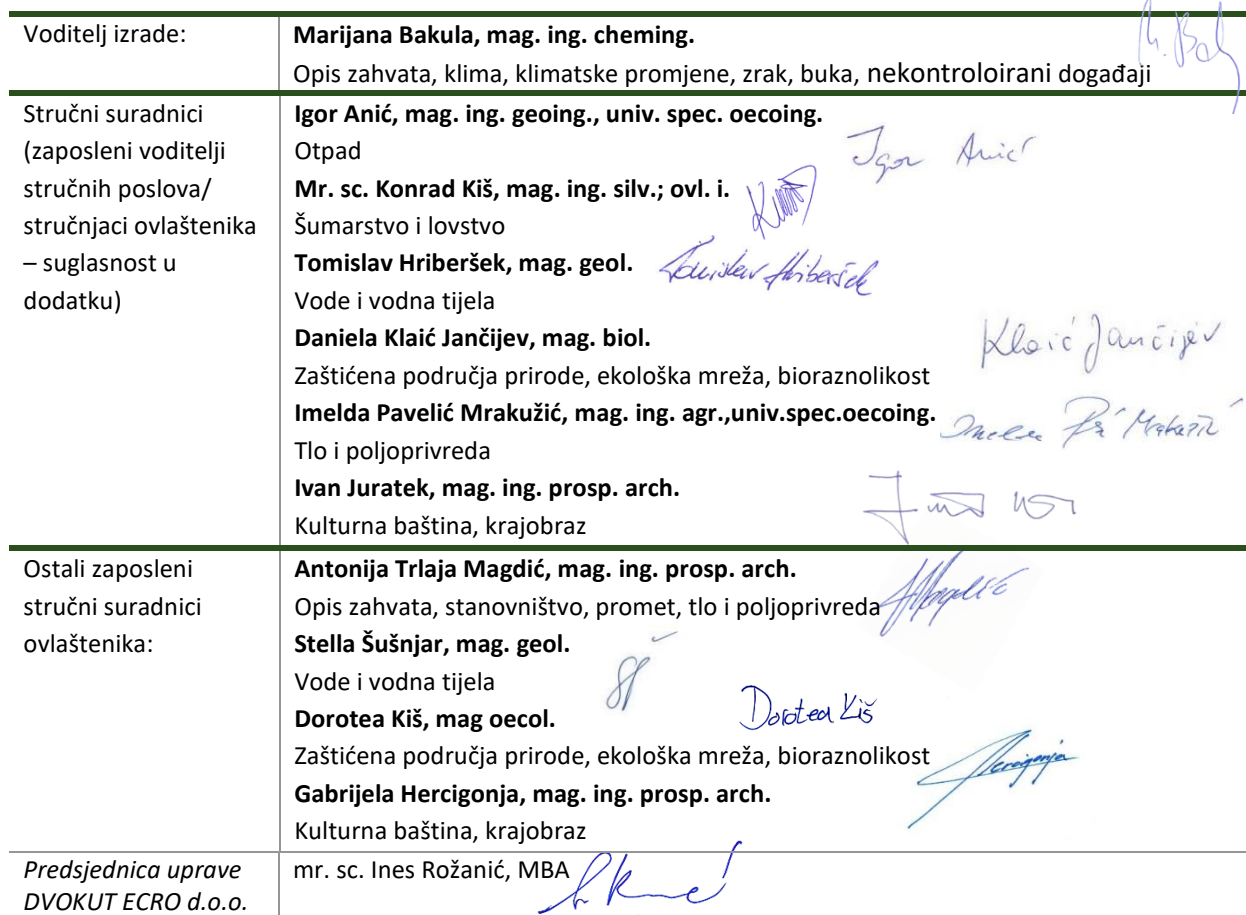 Voditelj izrade:
Marijana Bakula, mag. ing. cheming.
Opis zahvata, klima, klimatske promjene, zrak, buka, nekontroloirani događaji
Stručni suradnici
(zaposleni voditelji
stručnih poslova/
stručnjaci ovlaštenika
– suglasnost u
dodatku)
Igor Anić, mag. ing. geoing., univ. spec. oecoing.
Igor Anić
Otpad
Mr. sc. Konrad Kiš, mag. ing. silv.; ovl. i.
Šumarstvo i lovstvo
Tomislav Hriberšek, mag. geol.
Tomislav Hriberšek
Vode i vodna tijela
Daniela Klaić Jančijev, mag. biol.
Klaić Jančijev
Zaštićena područja prirode, ekološka mreža, bioraznolikost
Imelda Pavelić Mrakužić, mag. ing. agr.,univ.spec.oecoing.
Tlo i poljoprivreda
Ivan Juratek, mag. ing. prosp. arch.
Kulturna baština, krajobraz
Ostali zaposleni
stručni suradnici
ovlaštenika:
Antonija Trlaja Magdić, mag. ing. prosp. arch.
Opis zahvata, stanovništvo, promet, tlo i poljoprivreda
Stella Šušnjar, mag. geol.
Vode i vodna tijela
Dorotea Kiš, mag oecol.
Dorotea Kiš
Zaštićena područja prirode, ekološka mreža, bioraznolikost
Hercigonja
Gabrijela Hercigonja, mag. ing. prosp. arch.
Kulturna baština, krajobraz
Predsjednica uprave
DVOKUT ECRO d.o.o.
mr. sc. Ines Rožanić, MBA